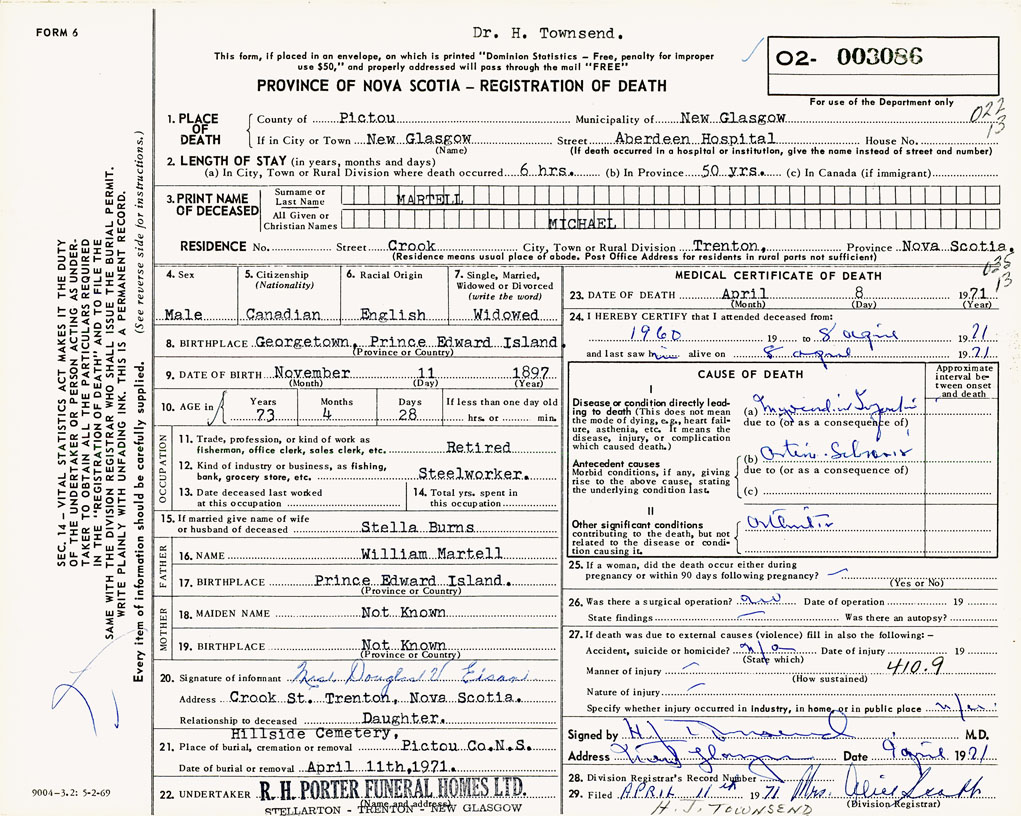 FORM 6
Dr. H. Townsend.
This form, if placed in an envelope, on which is printed "Dominion Statistics – Free, penalty for improper
use $50," and properly addressed will pass through the mail "FREE"
PROVINCE OF NOVA SCOTIA – REGISTRATION OF DEATH
02- 003086
For use of the Department only
022
13
1. PLACE OF DEATH County of Pictou Municipality of New Glasgow
If in City or Town New Glasgow Street Aberdeen Hospital House No.
(Name) (If death occurred in a hospital or institution, give the name instead of street and number)
2. LENGTH OF STAY (in years, months and days)
(a) In City, Town or Rural Division where death occurred 6 hrs. (b) In Province 50 yrs. (c) In Canada (if immigrant)
3. PRINT NAME OF DECEASED Surname or Last Name MARTELL
All Given or Christian Names MICHAEL
RESIDENCE No. Street Crook City, Town or Rural Division Trenton, Province Nova Scotia,
(Residence means usual place of abode. Post Office Address for residents in rural parts not sufficient)
035
13
4. Sex
Male
5. Citizenship
(Nationality)
Canadian
6. Racial Origin
English
7. Single, Married,
Widowed or Divorced
(write the word)
Widowed
8. BIRTHPLACE Georgetown, Prince Edward Island
(Province or Country)
9. DATE OF BIRTH November 11 1897
(Month) (Day) (Year)
10. AGE in Years Months Days If less than one day old
73 4 28 hrs. or min.
OCCUPATION
11. Trade, profession, or kind of work as
fisherman, office clerk, sales clerk, etc. Retired
12. Kind of industry or business, as fishing,
bank, grocery store, etc. Steelworker.
13. Date deceased last worked
at this occupation
14. Total yrs. spent in
this occupation
15. If married give name of wife
or husband of deceased Stella Burns
FATHER
16. NAME William Martell
17. BIRTHPLACE Prince Edward Island.
(Province or Country)
MOTHER
18. MAIDEN NAME Not Known
19. BIRTHPLACE Not Known
(Province or Country)
20. Signature of informant Mrs Douglas V
Address Crook St. Trenton, Nova Scotia.
Relationship to deceased Daughter.
Hillside Cemetery,
21. Place of burial, cremation or removal Pictou Co.N.S.
Date of burial or removal April 11th,1971.
22. UNDERTAKER R. H. PORTER FUNERAL HOMES LTD.
(Name and address)
STELLARTON - TRENTON - NEW GLASGOW
MEDICAL CERTIFICATE OF DEATH
23. DATE OF DEATH April 8 1971
(Month) (Day) (Year)
24. I HEREBY CERTIFY that I attended deceased from:
1960 19 to 8 April 1971
and last saw him alive on 8 April 1971
CAUSE OF DEATH
Approximate
interval be-
tween onset
and death
I
Disease or condition directly lead-
ing to death (This does not mean
the mode of dying, e.g., heart fail-
ure, asthenia, etc. It means the
disease, injury, or complication
which caused death.)
(a)
due to (or as a consequence of)
Antecedent causes
Morbid conditions, if any, giving
rise to the above cause, stating
the underlying condition last.
(b)
due to (or as a consequence of)
(c)
II
Other significant conditions
contributing to the death, but not
related to the disease or condi-
tion causing it.
Arthritis
25. If a woman, did the death occur either during
pregnancy or within 90 days following pregnancy?
(Yes or No)
26. Was there a surgical operation? Date of operation 19
State findings Was there an autopsy?
27. If death was due to external causes (violence) fill in also the following: –
Accident, suicide or homicide? n/a Date of injury 19
(State which)
Manner of injury 410.9
(How sustained)
Nature of injury
Specify whether injury occurred in industry, in home, or in public place
Signed by H J Townsend M.D.
Address New Glasgow Date 9 April 1971
28. Division Registrar's Record Number
29. Filed APRIL 11th 1971 Mrs. Alice
(Division Registrar)
H.J. TOWNSEND
SEC. 14 – VITAL STATISTICS ACT MAKES IT THE DUTY
OF THE UNDERTAKER OR PERSON ACTING AS UNDER-
TAKER TO OBTAIN ALL THE PARTICULARS REQUIRED
IN THE "REGISTRATION OF DEATH" AND TO FILE THE
SAME WITH THE DIVISION REGISTRAR WHO SHALL ISSUE THE BURIAL PERMIT.
WRITE PLAINLY WITH UNFADING INK. THIS IS A PERMANENT RECORD.
Every item of information should be carefully supplied. (See reverse side for instructions.)
9004-3.2: 5-2-69